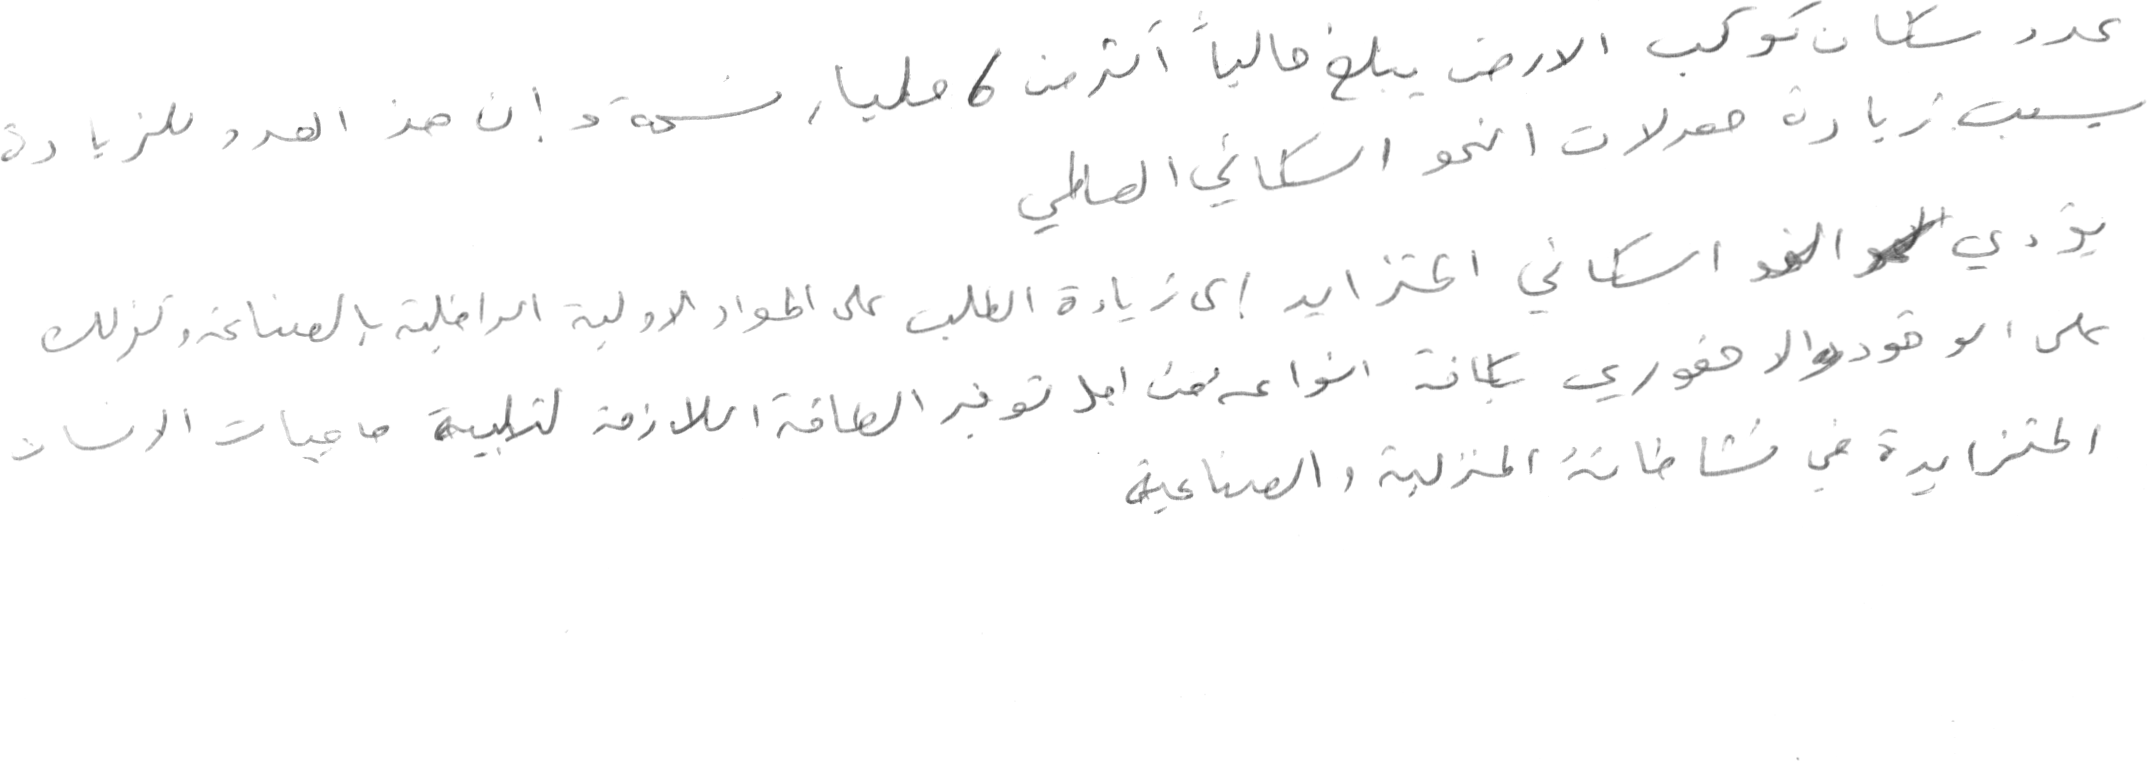 عدد سكان كوكب الارض يبلغ حالياً أكثر من 6 مليار نسمة و إن هذ العدد للزيادة
بسبب زيادة معدلات النمو السكاني العالمي
يؤدي النمو السكاني المتزايد إلى زيادة الطلب على المواد الاولية الداخلية بالصناعة وكذلك
على الوقود الاحفوري بكافة انواعه من اجل توفير الطاقة اللازمة لتلبية حاجيات الانسان
المتزايدة في نشاطاته المنزلية والصناعية